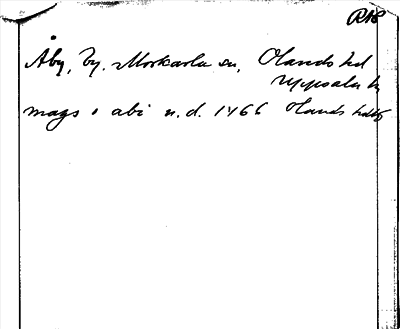 RAÄ
Åby, by. Morkarla sn, Olands hd
Uppsala ln
mags i abi n.d. 1466 Olands hdbf